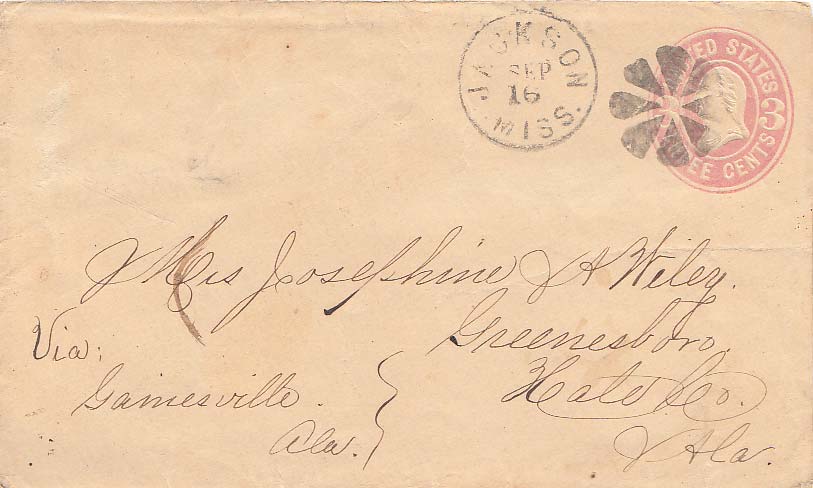 JACKSON
SEP
16
MISS.
UNITED STATES
3
THREE CENTS
Mrs Josephine A Wiley.
Greenesboro,
Hale Co.
Ala.
Via,
Gainesville.
Ala.